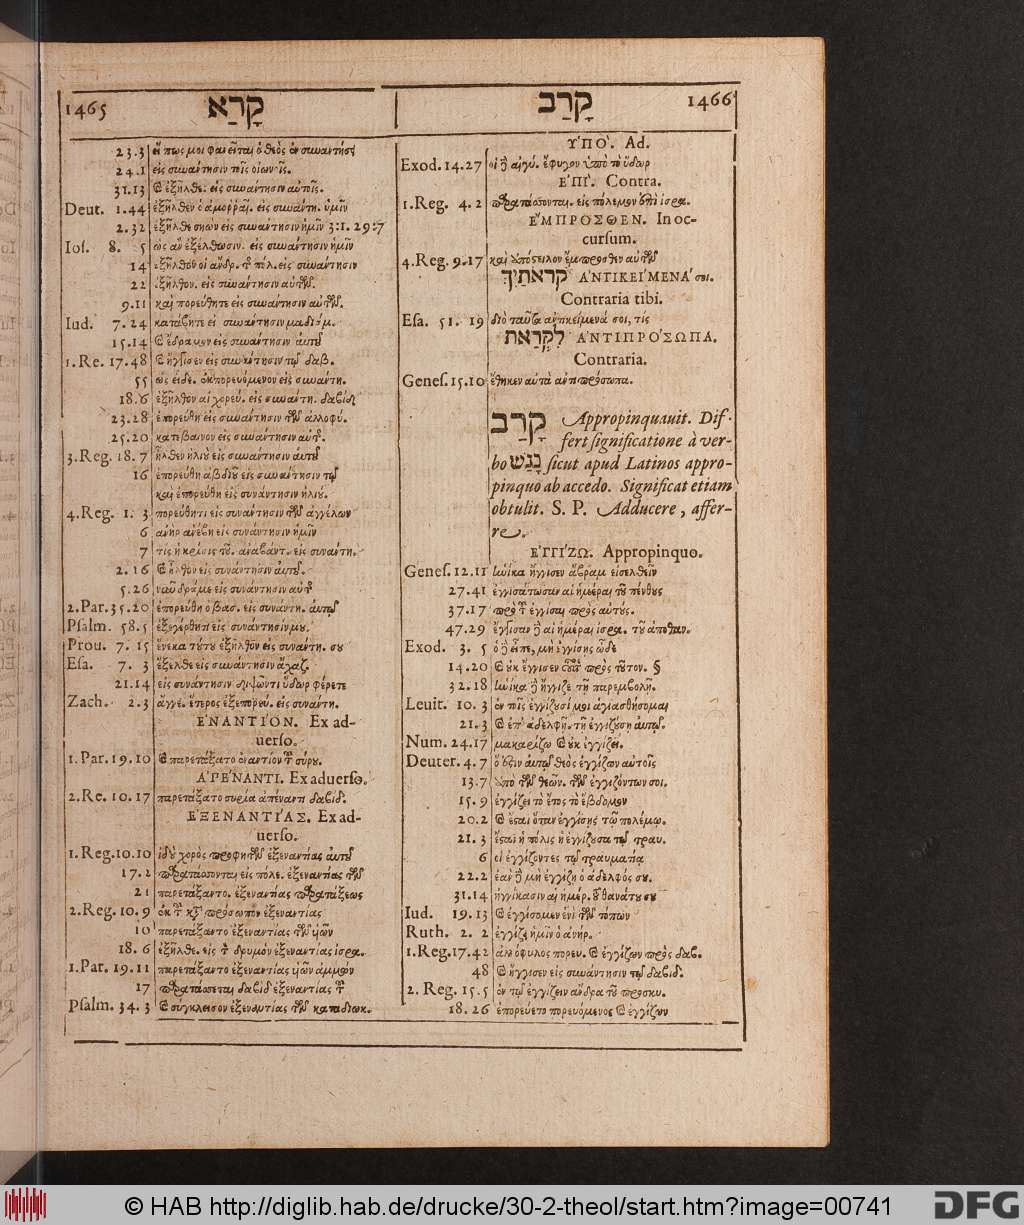 1465 קָרַא
23.3 εἴ πως μοι φανεῖται ὁ θεὸς ἐν συναντήσει
24.1 εἰς συνάντησιν τοῖς οἰωνοῖς.
31.13 καὶ ἐξῆλθε. εἰς συνάντησιν αὐτοῖς.
Deut. 1.44 ἐξῆλθεν ὁ ἀμορραῖ. εἰς συνάντη. ὑμῖν
2.32 ἐξῆλθε σηὼν εἰς συνάντησιν ἡμῖν 3:1. 29:7
Ios. 8. 5 ὡς ἂν ἐξέλθωσιν. εἰς συνάντησιν ἡμῖν
14 ἐξῆλθον οἱ ἄνδρ. τῆς πόλ. εἰς συνάντησιν
22 ἐξῆλθον. εἰς συνάντησιν αὐτῶν.
9.11 καὶ πορεύθητε εἰς συνάντησιν αὐτῶν.
Iud. 7.24 κατάβητε εἰ συνάντησιν μαδιάμ.
15.14 καὶ ἔδραμον εἰς συνάντησιν αὐτοῦ
1.Re. 17.48 καὶ ἤγγισεν εἰς συνάντησιν τῷ δαβ.
55 ὡς εἶδε. ἐκπορευόμενον εἰς συνάντη.
18.6 ἐξῆλθον αἱ χορεύ. εἰς συνάντη. δαβίδ
23.28 ἐπορεύθη εἰς συνάντησιν τῶν ἀλλοφύ.
25.20 κατέβαινον εἰς συνάντησιν αὐτῆς.
3.Reg. 18.7 ἦλθεν ἠλιοὺ εἰς συνάντησιν αὐτοῦ
16 ἐπορεύθη ἀβδιοῦ εἰς συνάντησιν τῷ
καὶ ἐπορεύθη εἰς συνάντησιν ἠλιού.
4.Reg. 1. 3 πορεύθητι εἰς συνάντησιν τῶν ἀγγέλων
6 ἀνὴρ ἀνέβη εἰς συνάντησιν ἡμῖν
7 τίς ἡ κρίσις τοῦ. ἀναβάντ. εἰς συνάντη.
2.16 καὶ ἦλθον εἰς συνάντησιν αὐτοῦ.
5.26 δράμε εἰς συνάντησιν αὐτῆς
2.Par. 35.20 ἐπορεύθη ὁ βασ. εἰς συνάντη. αὐτῷ
Psalm. 58.5 ἐξεγέρθητι εἰς συνάντησίν μου.
Prou. 7. 15 ἕνεκα τούτου ἐξῆλθον εἰς συνάντη. σου
Esa. 7. 3 ἔξελθε εἰς συνάντησιν ἄχαζ.
21.14 εἰς συνάντησιν διψῶντι ὕδωρ φέρετε
Zach. 2.3 ἄγγε. ἕτερος ἐξεπορεύ. εἰς συνάντη.
ἘΝΑΝΤΊΟΝ. Ex ad-
uerso.
1.Par. 19.10 καὶ παρετάξατο ἐναντίον τοῦ σύρου.
ἈΠΈΝΑΝΤΙ. Ex aduerso.
2.Re. 10.17 παρετάξατο συρία ἀπέναντι δαβίδ.
ἘΞΕΝΑΝΤΊΑΣ. Ex ad-
uerso.
1.Reg. 10.10 ἰδοὺ χορὸς προφητῶν ἐξεναντίας αὐτοῦ
17.2 παρατάσσονται εἰς πόλε. ἐξεναντίας τῶν
21 παρετάξαντο. ἐξεναντίας παρατάξεως
2.Reg. 10.9 ἐκ τοῦ κατὰ πρόσωπον ἐξεναντίας
10 παρετάξαντο ἐξεναντίας τῶν υἱῶν
18.6 ἐξῆλθε. εἰς τὸν δρυμὸν ἐξεναντίας ἰσρα.
1.Par. 19.11 παρετάξαντο ἐξεναντίας υἱῶν ἀμμών
17 παρατάσσεται δαβὶδ ἐξεναντίας τοῦ
Psalm. 34.3 καὶ σύγκλεισον ἐξεναντίας τῶν καταδιωκ.
קָרַב 1466
ὙΠῸ. Ad.
Exod. 14.27 οἱ δὲ αἰγύ. ἔφυγον ὑπὸ τὸ ὕδωρ
ἘΠΊ. Contra.
1.Reg. 4.2 παρατάσσονται. εἰς πόλεμον ἐπὶ ἰσρα.
ἜΜΠΡΟΣΘΕΝ. In oc-
cursum.
4.Reg. 9.17 καὶ ἀπόστειλον ἔμπροσθεν αὐτῶν
קראתיך ἈΝΤΙΚΕΊΜΕΝΆ σοι.
Contraria tibi.
Esa. 51. 19 δύο ταῦτα ἀντικείμενά σοι, τίς
לִקְרַאת ἈΝΤΙΠΡΌΣΩΠΑ.
Contraria.
Genes. 15.10 ἔθηκεν αὐτὰ ἀντιπρόσωπα.
קָרַב Appropinquauit. Dif-
fert significatione à ver-
bo נָגַשׁ sicut apud Latinos appro-
pinquo ab accedo. Significat etiam
obtulit. S. P. Adducere, affer-
re.
ἘΓΓΊΖΩ. Appropinquo.
Genes. 12.11 ἡνίκα ἤγγισεν ἄβραμ εἰσελθεῖν
27.41 ἐγγισάτωσαν αἱ ἡμέραι τοῦ πένθους
37.17 πρὸ τοῦ ἐγγίσαι πρὸς αὐτούς.
47.29 ἤγγισαν δὲ αἱ ἡμέραι ἰσρα. τοῦ ἀποθαν.
Exod. 3. 5 ὁ δὲ εἶπε, μὴ ἐγγίσῃς ὧδε
14.20 καὶ οὐκ ἤγγισεν πρὸς τοῦτον. §
32.18 ἡνίκα δὲ ἤγγιζε τῇ παρεμβολῇ.
Leuit. 10. 3 ἐν τοῖς ἐγγίζουσί μοι ἁγιασθήσομαι
21.3 καὶ ἐπ' ἀδελφῇ. τῇ ἐγγιζούσῃ αὐτῷ.
Num. 24.17 μακαρίζω καὶ οὐκ ἐγγίζει.
Deuter. 4.7 ὅ ἐστιν αὐτῷ θεὸς ἐγγίζων αὐτοῖς
13.7 ἀπὸ τῶν θεῶν. τῶν ἐγγιζόντων σοι.
15. 9 ἐγγίζει τὸ ἔτος τὸ ἕβδομον
20.2 καὶ ἔσται ὅταν ἐγγίσῃς τῷ πολέμῳ.
21. 3 ἔσται ἡ πόλις ἡ ἐγγίζουσα τῷ τραυ.
6 οἱ ἐγγίζοντες τῷ τραυματίᾳ
22.2 ἐὰν δὲ μὴ ἐγγίζῃ ὁ ἀδελφός σου.
31.14 ἠγγίκασιν αἱ ἡμέρ. τοῦ θανάτου σου
Iud. 19.13 καὶ ἐγγίσομεν ἑνὶ τῶν τόπων
Ruth. 2. 2 ἐγγίζει ἡμῖν ὁ ἀνήρ.
1.Reg. 17.42 ἀλλόφυλος πορευ. καὶ ἐγγίζων πρὸς δαβ.
48 καὶ ἤγγισεν εἰς συνάντησιν τῷ δαβίδ.
2. Reg. 15.5 ἐν τῷ ἐγγίζειν ἄνδρα τοῦ προσκυ.
18.26 ἐπορεύετο πορευόμενος καὶ ἐγγίζων
© HAB http://diglib.hab.de/drucke/30-2-theol/start.htm?image=00741
DFG